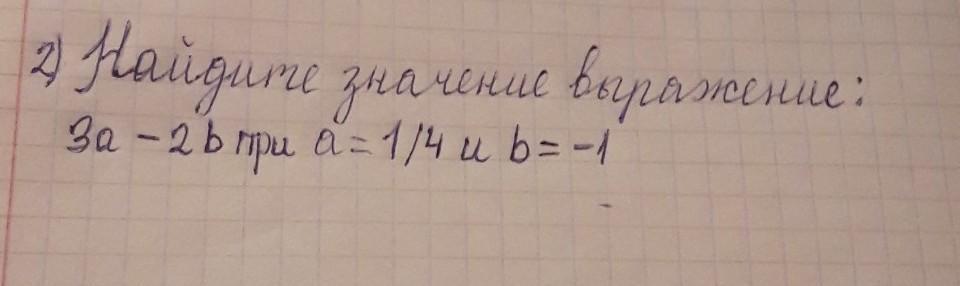 2) Найдите значение выражение:
3a - 2b при a = 1/4 и b = -1